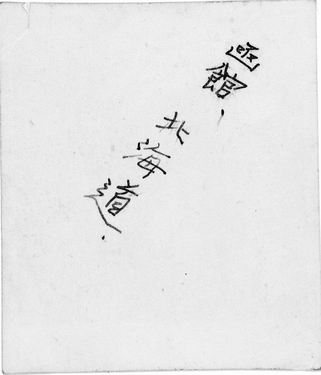 函館、
北海道.